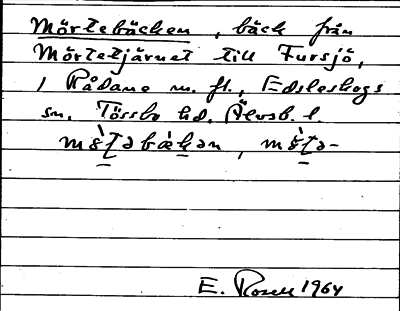 Mörtebäcken, bäck från
Mörtetjärnet till Fursjö,
i Rådane m. fl., Edsleskogs
sn. Tössbo hd. Älvsb. l.
E. Rosell 1964